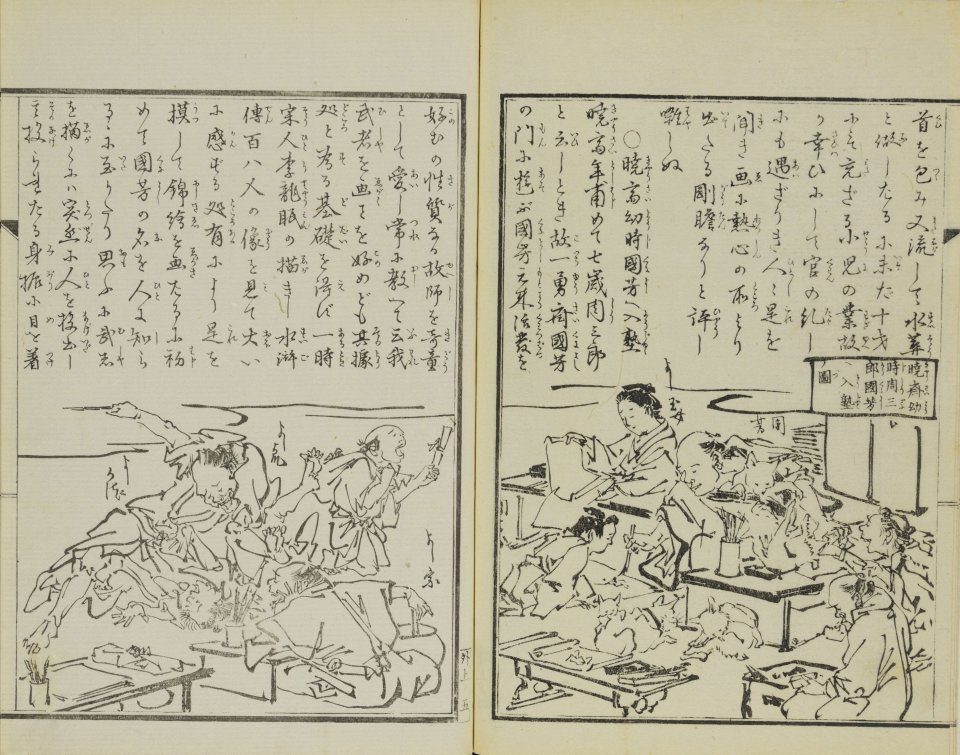 首を包み又流して水葬
と做したるハ未だ十才
小充ざる小児の業故
の幸ひにして官の糺し
小も遇ざりき人々是を
聞き画小熱心の
出たる剛膽なりと評し
囃しぬ
〇曉斎幼時國芳へ入塾
曉斎年甫めて七歳周三郎
と云しとき故一勇斎國芳
の門小遊ぶ國芳元来活發を
曉斎幼
時周三
郎國芳
へ入塾
圖
國芳
よし玉女
好むの性質なる故師も奇童
として愛し常小教へて云我
武者を画くを好めども其據
処と為る基礎を得ず一時
宋人李龍眠の描きし水滸
傳百八人の像を見て大い
小感ずる処有小より是を
模して錦絵を画たる小初
めて國芳の名を人小知ら
るゝ小至りたり思ふ小武者
を描くハ突然小人を投出し
又投られたる身振小目を着
よし宗
外上 五